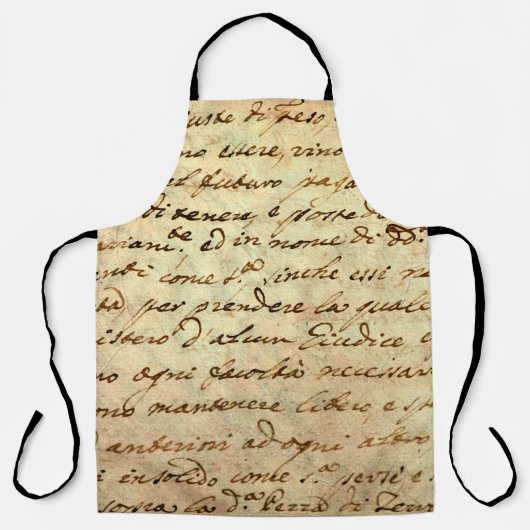 juste di Peso,
no essere, vinc
el futuro paga
di tenere, e possedi
amiani.te ed in nome di DD.
enti come s.a, finche essi n
tà per prendere la quale
istero d'alcun Giudice e
no ogni facoltà necessar
ono mantenere libero, e
anteriori ad ogni altro
i in solido come s.a servi e
sossa la d.a Pezza di Terr